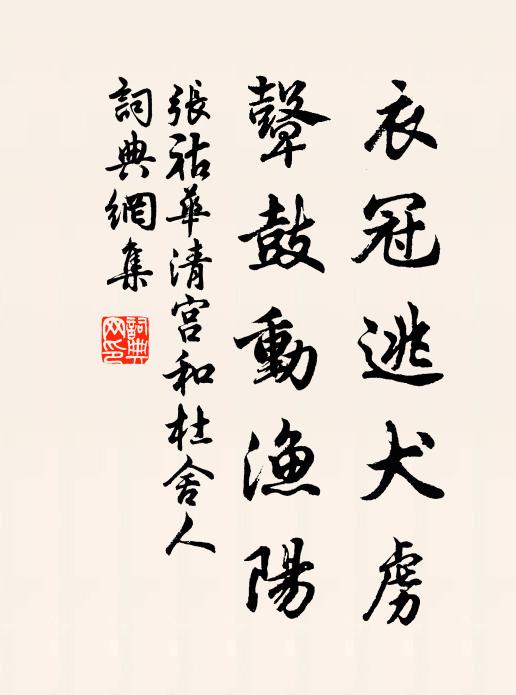 衣冠逃犬虏
鼙鼓動漁陽
張祜華清宮和杜舍人
詞典網集
詞典網印